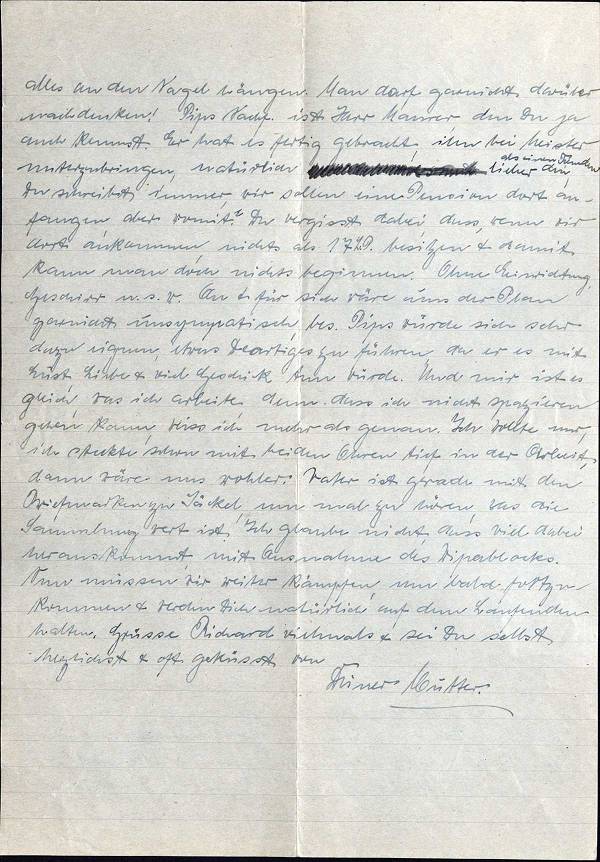 alles an den Nagel hängen. Man darf garnicht darüber
nachdenken! Pips Nachf. ist Herr Maurer, den Du ja
auch kennst. Er hat es fertig gebracht, ihn bei Meister
unterzubringen, natürlich als einen
Du schreibst immer, wir sollen eine Pension dort an-
fangen aber womit? Du vergisst dabei, dass, wenn wir
dort ankommen nichts als besitzen & damit
kann man doch nichts beginnen. Ohne Einrichtung,
Geschirr u.s.w. An & für sich wäre uns der Plan
garnicht unsympatisch, bes. Pips würde sich sehr
dazu eignen, etwas Deartiges zu führen, da er es mit
Lust, Liebe & viel Geschick tun würde. Und mir ist es
gleich, was ich arbeite, denn dass ich nicht spazieren
gehen kann, weiss ich mehr als genau. Ich wollte nur,
ich steckte schon mit beiden Ohren tief in der Arbeit,
dann wäre uns wohler. Vater ist gerade mit den
Briefmarken zu Jäckel, um mal zu hören, was die
Sammlung wert ist. Ich glaube nicht, dass viel dabei
herauskommt, mit Ausnahme des Wipablocks.
Nun müssen wir weiter kämpfen, um bald fortzu-
kommen & werden Dich natürlich auf dem Laufenden
halten. Grüsse Richard vielmals & sei Du selbst
herzlichst & oft geküsst von
Deiner Mutter.